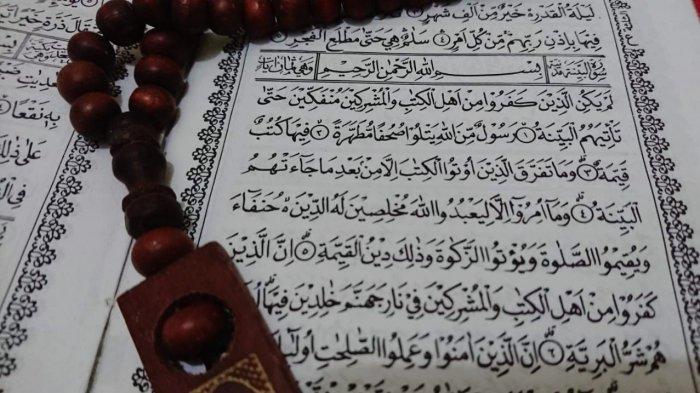 لَيْلَةُ الْقَدْرِ خَيْرٌ مِّنْ اَلْفِ شَهْرٍ
فِيْهَا بِاِذْنِ رَبِّهِمْ مِّنْ كُلِّ اَمْرٍ ۝٤ سَلٰمٌ هِيَ حَتّٰى مَطْلَعِ الْفَجْرِ ۝٥
سُوْرَةُ الْبَيِّنَةِ مَدَنِيَّةٌ بِسْمِ اللّٰهِ الرَّحْمٰنِ الرَّحِيْمِ وَهِيَ ثَمَانُ اٰيَاتٍ
لَمْ يَكُنِ الَّذِيْنَ كَفَرُوْا مِنْ اَهْلِ الْكِتٰبِ وَالْمُشْرِكِيْنَ مُنْفَكِّيْنَ حَتّٰى
تَأْتِيَهُمُ الْبَيِّنَةُ ۝١ رَسُوْلٌ مِّنَ اللّٰهِ يَتْلُوْا صُحُفًا مُّطَهَّرَةً ۝٢ فِيْهَا كُتُبٌ
قَيِّمَةٌ ۝٣ وَمَا تَفَرَّقَ الَّذِيْنَ اُوْتُوا الْكِتٰبَ اِلَّا مِنْ بَعْدِ مَا جَآءَتْهُمُ
الْبَيِّنَةُ ۝٤ وَمَآ اُمِرُوْٓا اِلَّا لِيَعْبُدُوا اللّٰهَ مُخْلِصِيْنَ لَهُ الدِّيْنَ حُنَفَآءَ
وَيُقِيْمُوا الصَّلٰوةَ وَيُؤْتُوا الزَّكٰوةَ وَذٰلِكَ دِيْنُ الْقَيِّمَةِ ۝٥ اِنَّ الَّذِيْنَ
كَفَرُوْا مِنْ اَهْلِ الْكِتٰبِ وَالْمُشْرِكِيْنَ فِيْ نَارِ جَهَنَّمَ خٰلِدِيْنَ فِيْهَا
هُمْ شَرُّ الْبَرِيَّةِ ۝٦ اِنَّ الَّذِيْنَ اٰمَنُوْا وَعَمِلُوا الصّٰلِحٰتِ